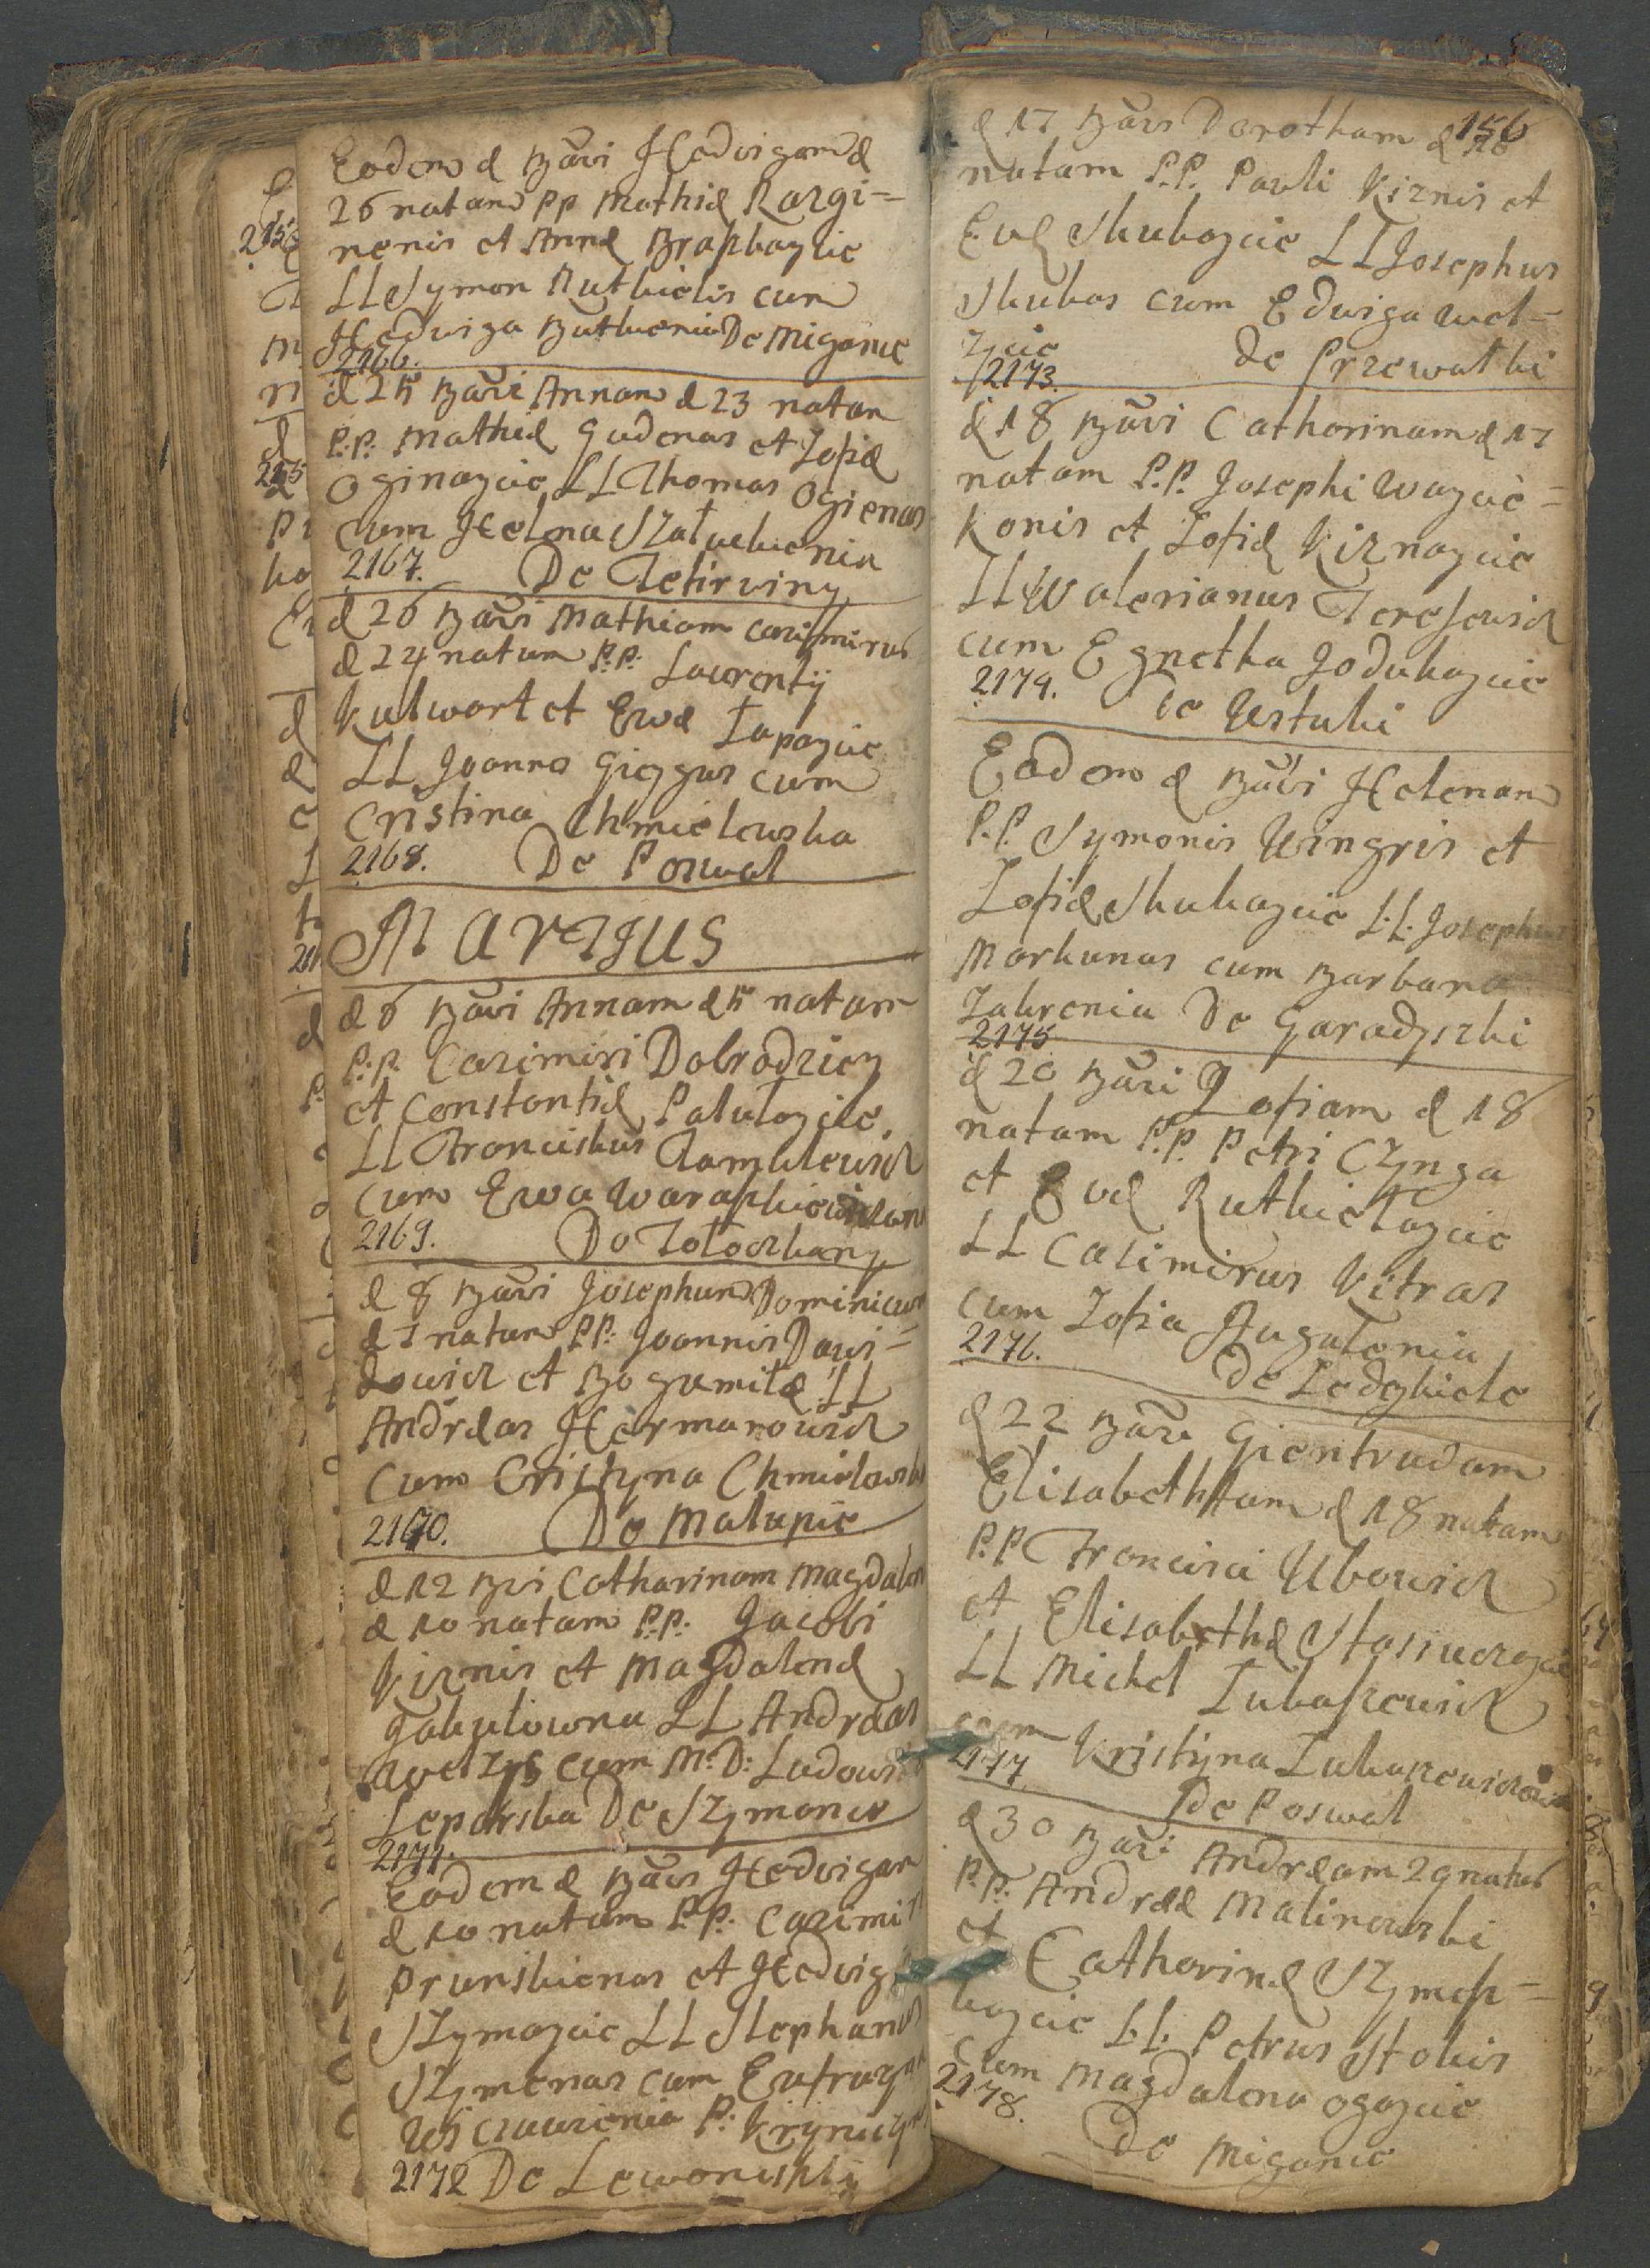 Eodem d Bavi Hedvigam d
26 natam PP Mathiæ Razgi=
nenis et Annæ Braszkaycie
LL Symon Rutkielis cum
Hedwiga Butkienia De Miganie
2166.
d 25 Bavi Annam d 23 natam
P.P. Mathiæ Gudenas et Zofiæ
Oginaycie LL Thomas Ogienas
cum Helena
2167. De Tetirviny
d 26 Bavi Mathiam Casimirus
d 24 natum P.P. Laurentÿ
Kulwart et Ewæ Łapaycie
LL Joannes cum
Cristina Chmielewska
2168. De Poswol
MARTIUS
d 6 Bavi Annam d 5 natam
P.P. Casimiri Dobrodziey
et Constantiæ Palulaycie
LL Franciskus
cum Ewa
2169. De Tołoczkany
d 8 Bavi Josephum Dominicum
d 7 natum P.P. Joannis Dawi=
dowicz et Bogumiłæ LL
Andræas Hermanowicz
cum Cristyna Chmielowska
2170. De Matupie
d 12 Bvi Catharinam Magdalen
d 10 natam P.P. Jacobi
Kirnis et Magdalenæ
Gabulowna LL Andræas
Welzys cum M.D: Ludowi
Leparska De Szymonie
2171.
Eodem d Bavi Hedvigam
d 10 natam P.P. Casimi
Prunskienas et Hedvig
Szymaycie LL Stephanus
Szymenas cum
2172 De Lewoniszki
156
d 17 Bavi Dorotham d 16
natam P.P. Pauli Kirnis et
Evæ Skukaycie LL Josephus
Skukas cum Edwiga Wel=
zycie De Przewałki
2173.
d 18 Bavi Catharinam d 17
natam P.P. Josephi Waycie=
konis et Zofiæ Kirnaycie
LL Walerianus Teresewicz
cum Egnetka Jodukaycie
2174. De Ustuki
Eodem d Bavi Helenam
P.P. Symonis Uingris et
Zofiæ Skukaycie L.L. Josephus
Markunas cum Barbara
Zabrenia De Garadyszki
2175
d 20 Bavi Zofiam d 18
natam P.P. Petri Czynga
et Evæ Rutkiełaycie
LL Casimirus Kitras
cum Zofia Augałonia
2176. De Ledykiele
d 22 Bavi Gientrudam
Elisabetham d 18 natam
P.P. Francisci Ubowicz
et Elisabethæ
LL Michel Łukaszewicz
cum Kristyna Łukaszewiczowa
2177 De Poswol
d 30 Bavi Andræam 29 natus
P.P. Andreæ Malinowski
et Catharinæ Szymosz=
kaycie L.L. Petrus Stokis
cum Magdalena Ogaycie
2178.
De Miganie